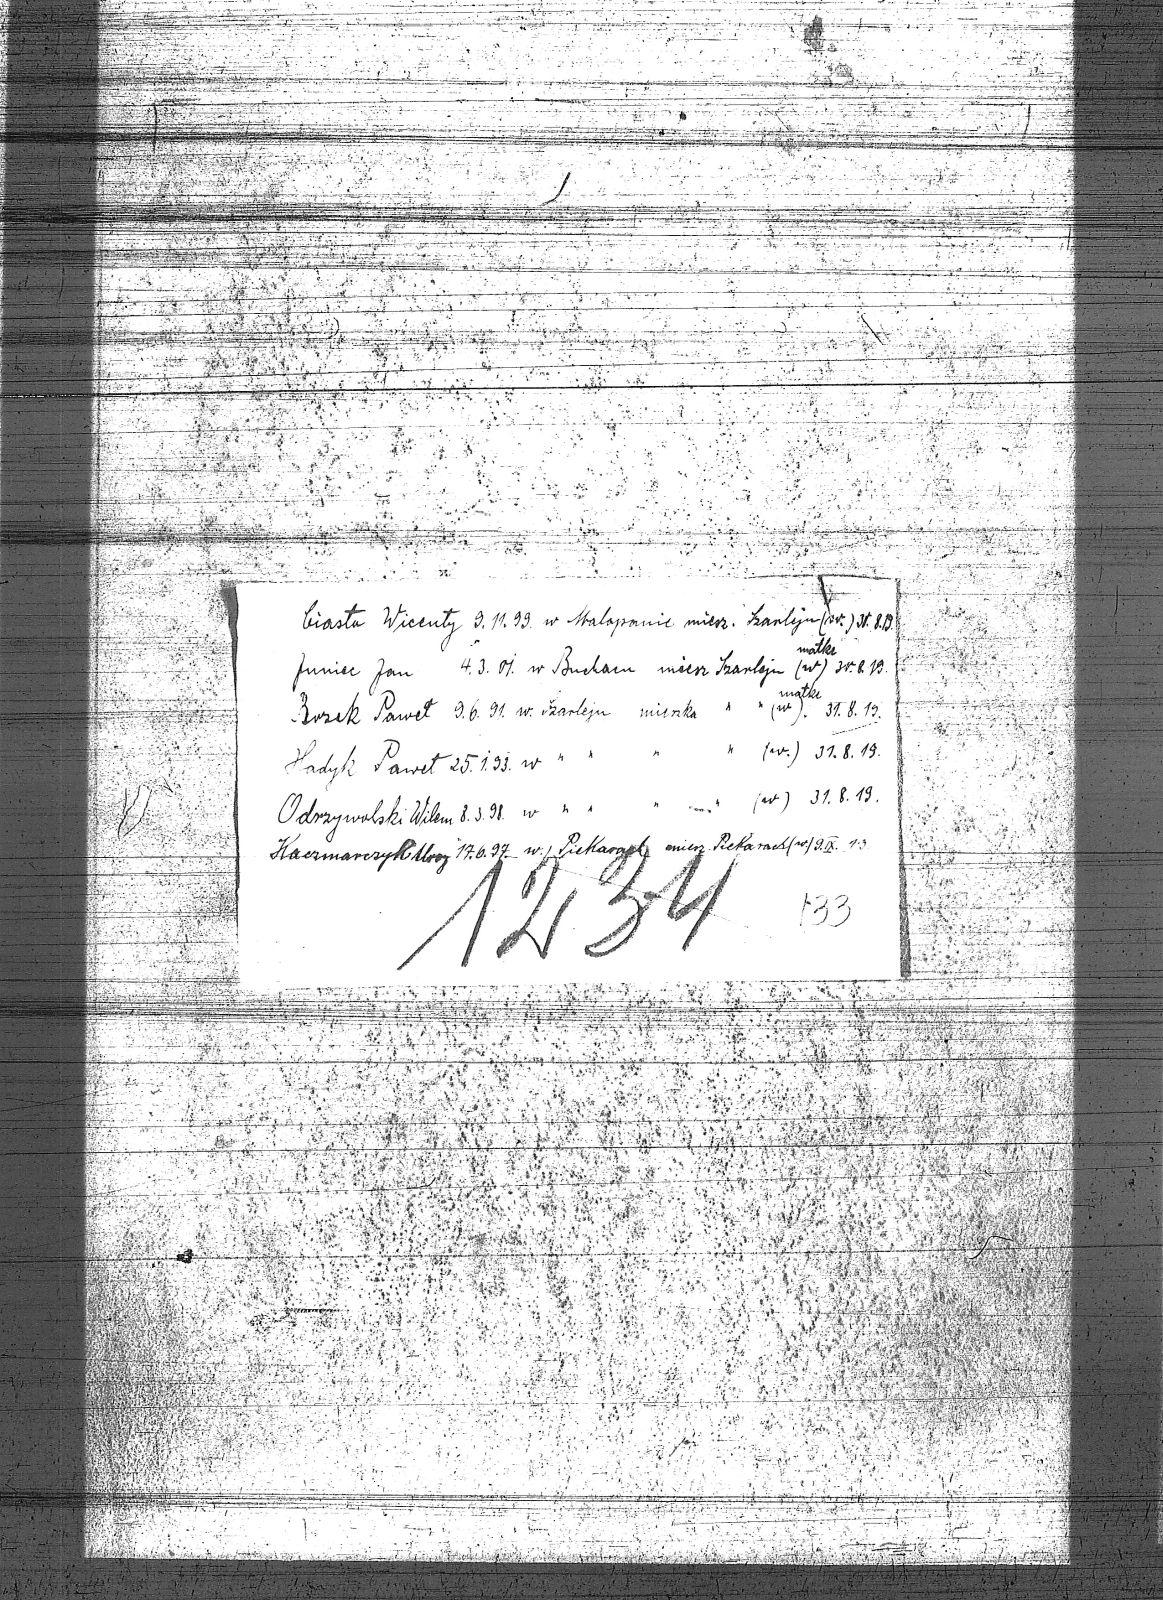 Ciasto Wicenty 9.11.99. w Malapanie miesz. Szarleju (w.) 31.8.19.
Juniec Jan 4.3.01. w Buchacu miesz Szarleju (w) 31.8.19.
matkę
Bozek Paweł 9.6.91. w. Szarleju mieszka " " (w). 31.8.19.
matkę
Hadyk Paweł 25.1.93. w " " " " (w.) 31.8.19.
Odrzywolski Wilem 8.3.98. w " " " " (w) 31.8.19.
Kaczmarczyk 17.6.97. w. Piekarach miesz. Piekarach (w.) 9.IX. 19
1234
133